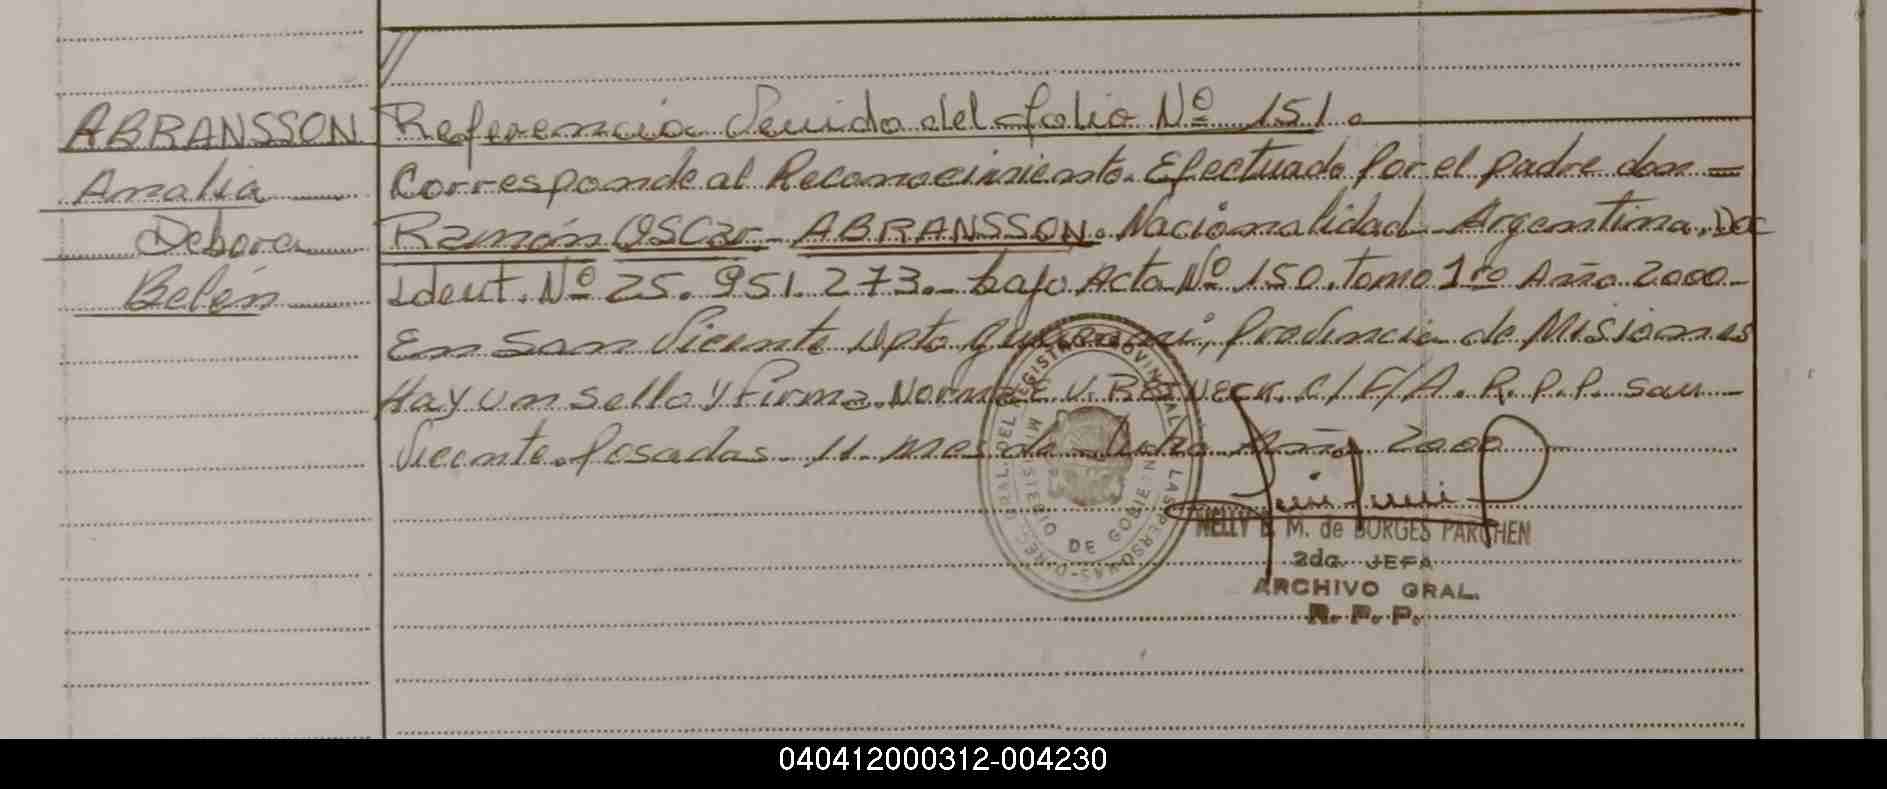 ABRANSSON
Amalia
Debora
Belén
Referencia Venida del folio Nº 151.
Corresponde al Reconocimiento. Efectuado por el padre don =
Ramón OSCar - ABRANSSON. Nacionalidad Argentina. Doc
Ident. Nº 25.951.273.- bajo Acta Nº 150. tomo 1ro Año 2000-
En San Vicente Dpto Guaraní, Provincia de Misiones
Hay un sello y firma. Norma E. V. C/F/A. R.P.P. San
Vicente. Posadas. 11. mes de Año 2000
REGISTRO PROVINCIAL DE LAS PERSONAS
MINISTERIO DE GOBIERNO
NELLY E. M. de BORGES PARCHEN
2da. JEFA
ARCHIVO GRAL.
R. P. P.
040412000312-004230